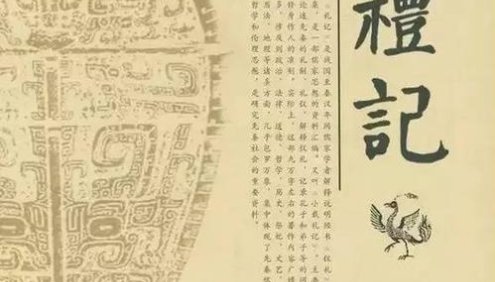 禮記
《礼记》是战国至秦汉年间儒家学者解释说明经书《仪礼》
集，是一部儒家思想的资料汇编。又叫《小戴礼记》。主要
论述先秦的礼制、礼仪，解释仪礼，记录孔子和弟子等的
修身作人的准则。实际上，这部九万字左右的著作内容广博
多，涉及到政治、法律、道德、哲学、历史、祭祀、文艺、
法、地理等诸多方面，几乎包罗万象，集中体现了先秦
哲学和伦理思想，是研究先秦社会的重要资料。